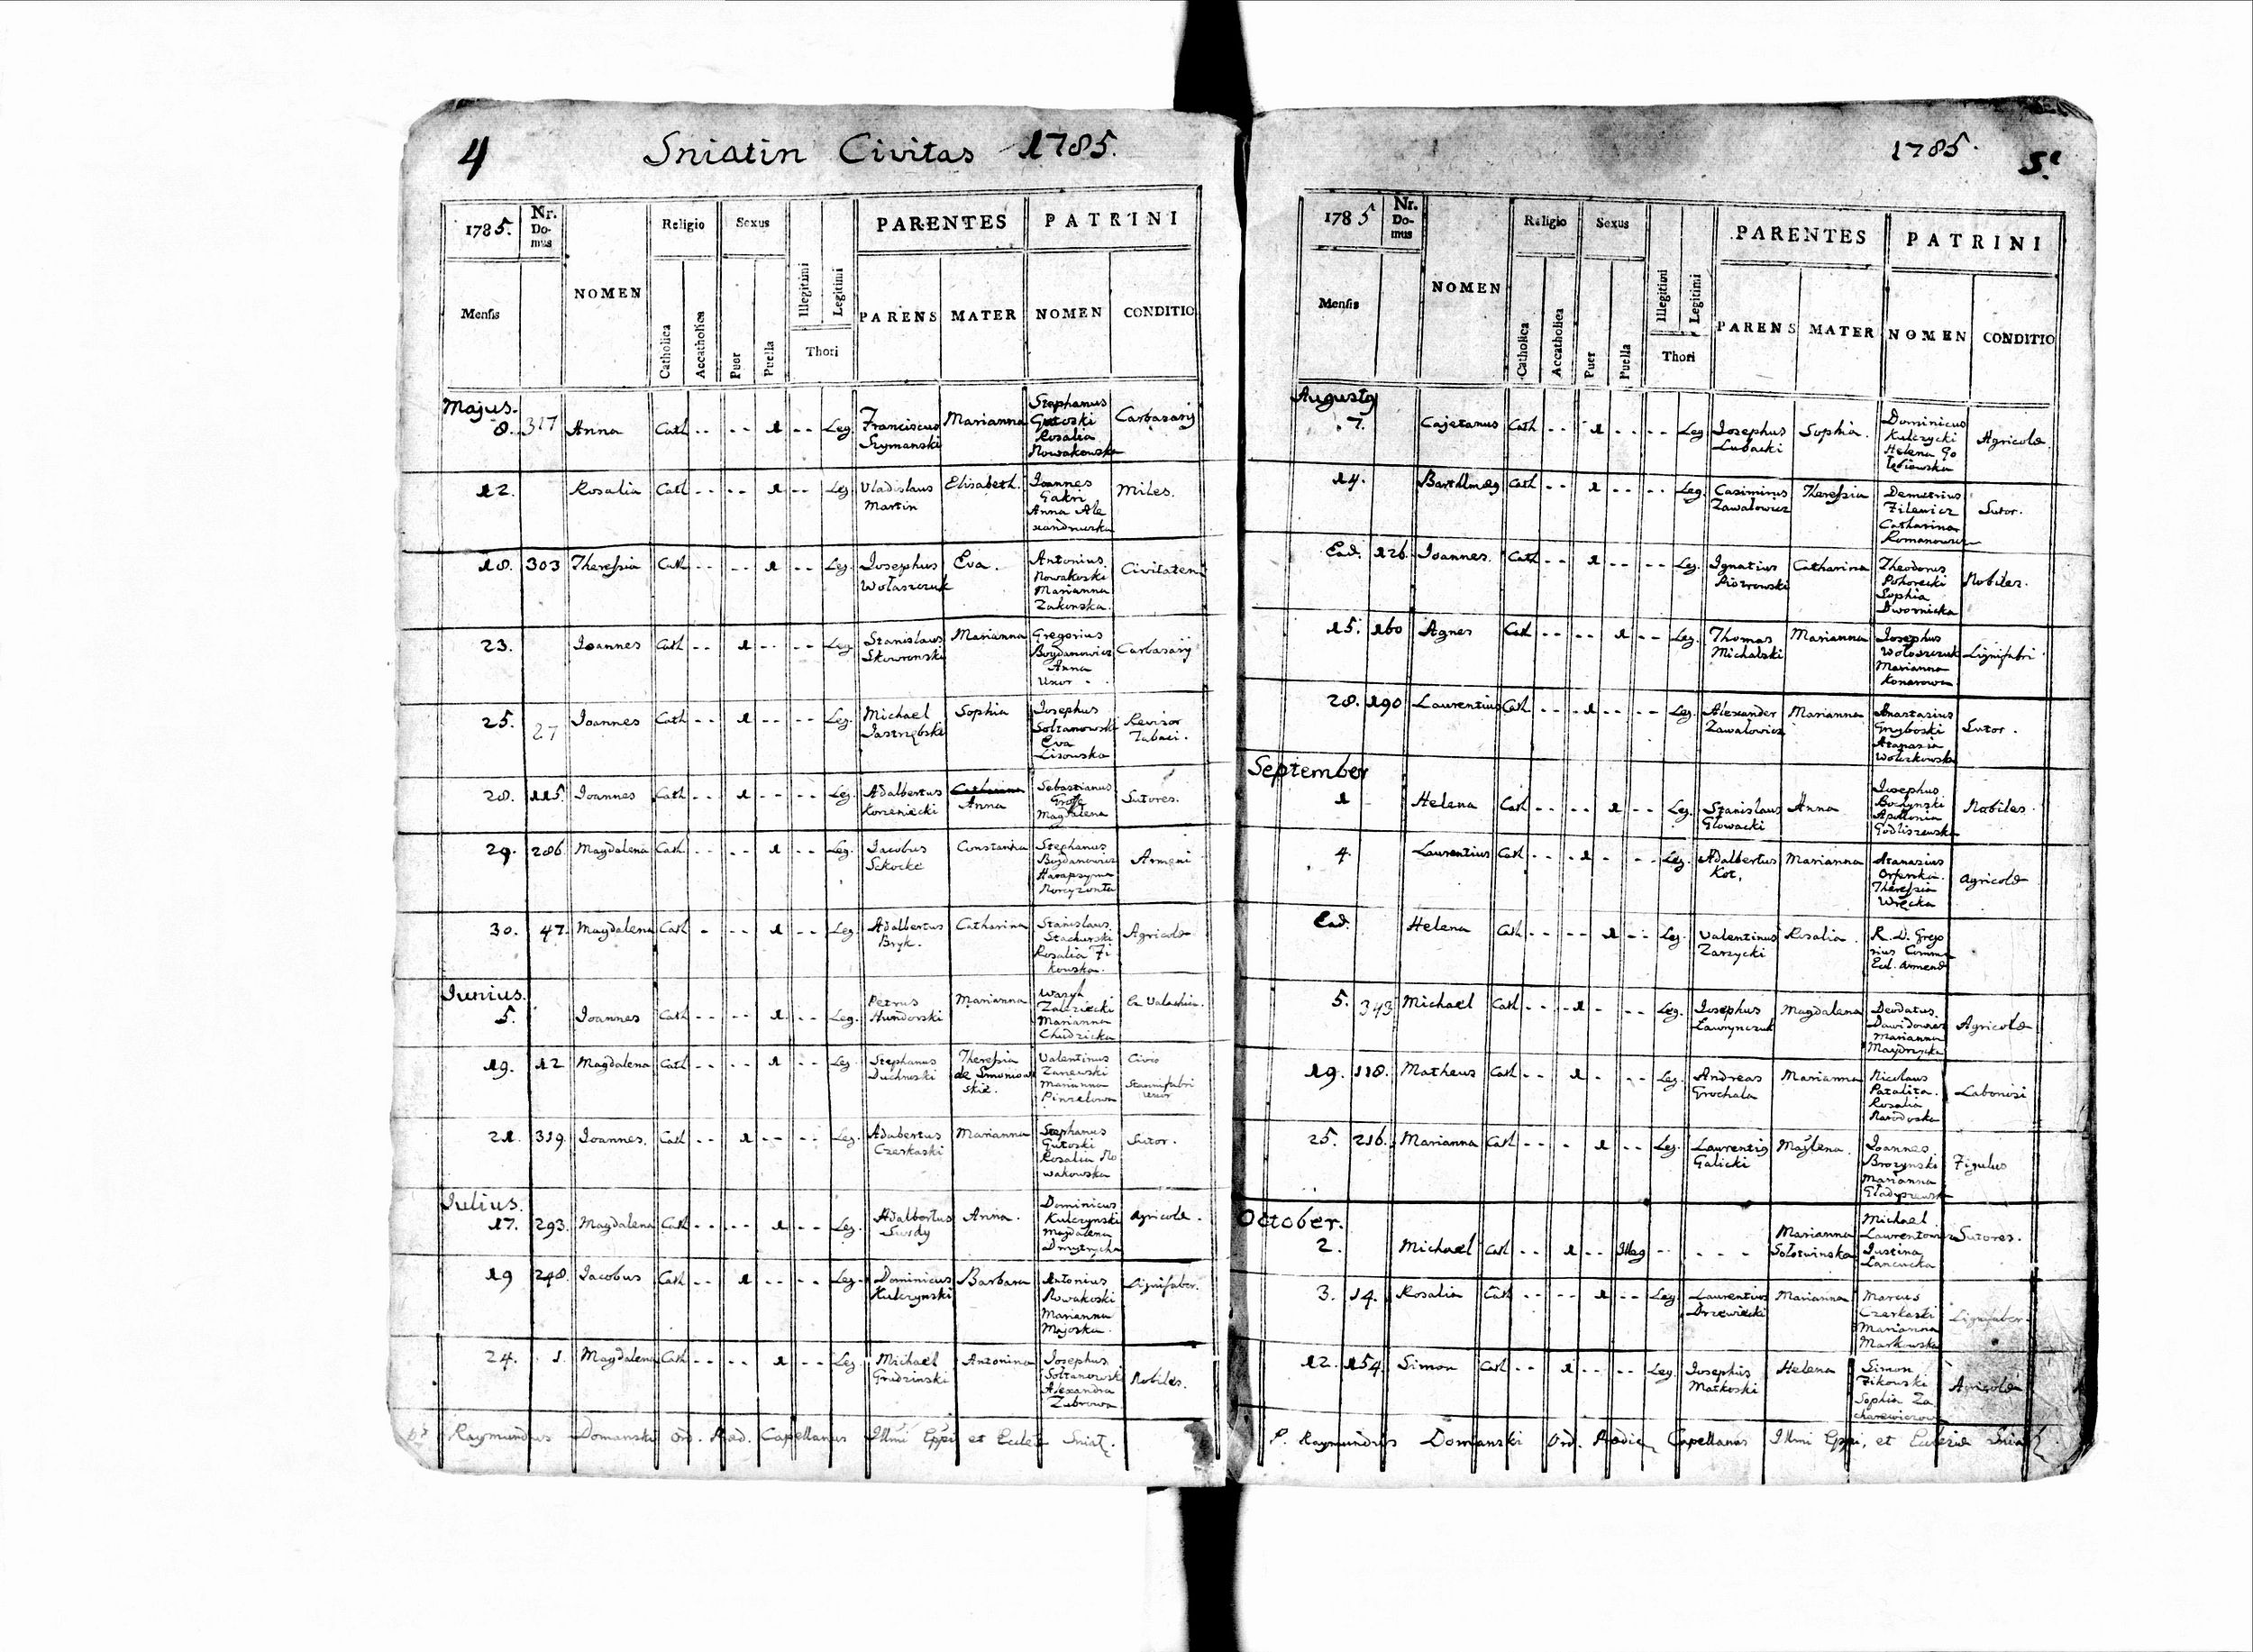 4 Sniatin Civitas 1785.
1785. Nr. Domus NOMEN Religio Sexus Illegitimi Legitimi PARENTES PATRINI
Mensis Catholica Accatholica Puer Puella Thori PARENS MATER NOMEN CONDITIO
Majus.
8. 317 Anna Cath -- -- 1 -- Leg. Franciscus Szymanski Marianna Stephanus Gutoski Rosalia Nowakowska Carbasarij
12. Rosalia Cath -- -- 1 -- Leg. Vladislaus Martin Elisabeth. Joannes Gakri Anna Miles.
18. 303 Theressia Cath -- -- 1 -- Leg. Josephus Wołaszczuk Eva. Antonius Nowakoski Marianna Zakinska.
23. Joannes Cath -- 1 -- -- Leg. Stanislaus Skowronski Marianna Gregorius Bogdanowicz Anna Uxor Carbasarij
25. 27 Joannes Cath -- 1 -- -- Leg. Michael Jastrzębski Sophia Josephus Sołtanowski Eva Lisowska Revisor Tabaci.
28. 115. Joannes Cath -- 1 -- -- Leg. Adalbertus Korzeniecki Anna Sebastianus Magdalena Sutores.
29. 286. Magdalena Cath. -- -- 1 -- Leg. Jacobus Sckocke Constantia Stephanus Bogdanowicz Armeni
30. 47. Magdalena Cath - -- 1 -- Leg. Adalbertus Bryk. Catharina Stanislaus Stachurski Rosalia Fi kowska. Agricolæ
Junius.
5. Joannes Cath -- -- 1 -- Leg. Petrus Hundorski Marianna Marianna Chudzicka
19. 12 Magdalena Cath -- -- 1 -- Leg. Stephanus Duchnoski Theressia Valentinus Zanewski Marianna Pinzelowa Civis Stannifabri uxor
21. 319. Joannes. Cath -- 1 -- -- Leg. Adabertus Czerkaski Marianna Stephanus Gutoski Rosalia No wakowska Sutor.
Julius.
17. 293. Magdalena Cath -- -- 1 -- Leg. Adalbertus Anna. Dominicus Kulczynski Magdalena Dmytrycha Agricolæ.
19 248. Jacobus Cath -- 1 -- -- Leg. Dominicus Kulczynski Barbara Antonius Nowakoski Marianna Majoska. Lignifaber.
24. 1. Magdalena Cath -- -- 1 -- Leg. Michael Grudzinski Antonina Josephus Sołtanowski Alexandra Zubrowa Nobiles.
Raymundus Domanski Ord. Præd. Capellanus Illmi Eppi et Sniat.
1785. 5.
1785 Nr. Domus NOMEN Religio Sexus Illegitimi Legitimi PARENTES PATRINI
Mensis Catholica Accatholica Puer Puella Thori PARENS MATER NOMEN CONDITIO
Augusty
7. Cajetanus Cath -- 1 -- -- Leg Josephus Lubacki Sophia. Dominicus Kulczycki Helena Go łębiowska Agricolæ.
14. Cath -- 1 -- -- Leg. Casimirus Zawalowicz Theressia Demetrius Filewicz Catharina Romanowicz Sutor.
Ead. 126. Joannes. Cath -- 1 -- -- Leg. Ignatius Piotrowski Catharina Theodorus Pohorecki Sophia Dwornicka Nobiles.
15. 160 Agnes Cath -- -- 1 -- Leg. Thomas Michalski Marianna Josephus Wołoszczuk Marianna Konarowa Lignifabri
28. 190 Laurentius Cath -- 1 -- -- Leg. Alexander Zawalowicz Marianna Anastasius Grzyboski Atanasia Wołczkowska Sutor.
September
1 Helena Cath -- -- 1 -- Leg. Stanislaus Głowacki Anna Josephus Bochynski Apollonia Godliszewska Nobiles.
4. Laurentius Cath -- 1 - -- Leg. Adalbertus Kot, Marianna Atanasius Theressia Wręcka Agricolæ
Ead. Helena Cath -- -- 1 -- Leg. Valentinus Zarzycki Rosalia. R. D. Grego rius
5. 343 Michael Cath -- 1 - -- Leg. Josephus Ławrynczuk Magdalena Deodatus Dawidowicz Marianna Agricolæ
19. 118. Matheus Cath -- 1 - -- Leg. Andreas Grochala Marianna Nicolaus Patalita. Rosalia Narodoska Laboriosi
25. 216. Marianna Cath -- - 1 -- Leg. Laurentiy Galicki Majlena. Joannes Brozynski Marianna Gładyszewska Figulus
October.
2. Michael Cath -- 1 -- Illeg -- --- Marianna Sołotwinska Michael Laurentowicz Justina Lancucka Sutores.
3. 14. Rosalia Cath -- -- 1 -- Leg. Laurentius Drzewiecki Marianna Marcus Czerkaski Marianna Markowska Lignifaber.
12. 154. Simon Cath -- 1 -- -- Leg Josephus Małkoski Helena Simon Fikowski Sophia Za charewiczowa Agricolæ
P. Raymundus Domanski Ord. Prædic. Capellanus Illmi Eppi, et Ecclesiæ